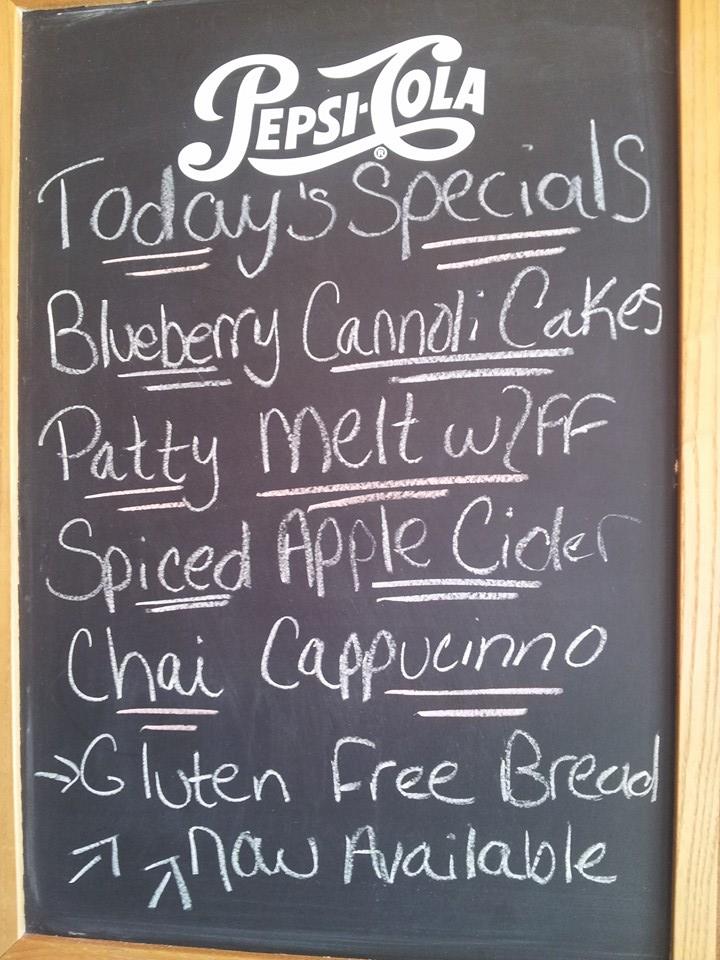 PEPSI-COLA ®
Today's Specials
Blueberry Cannoli Cakes
Patty melt w/FF
Spiced Apple Cider
Chai Cappucinno
→Gluten Free Bread
↗ ↗ Now Available